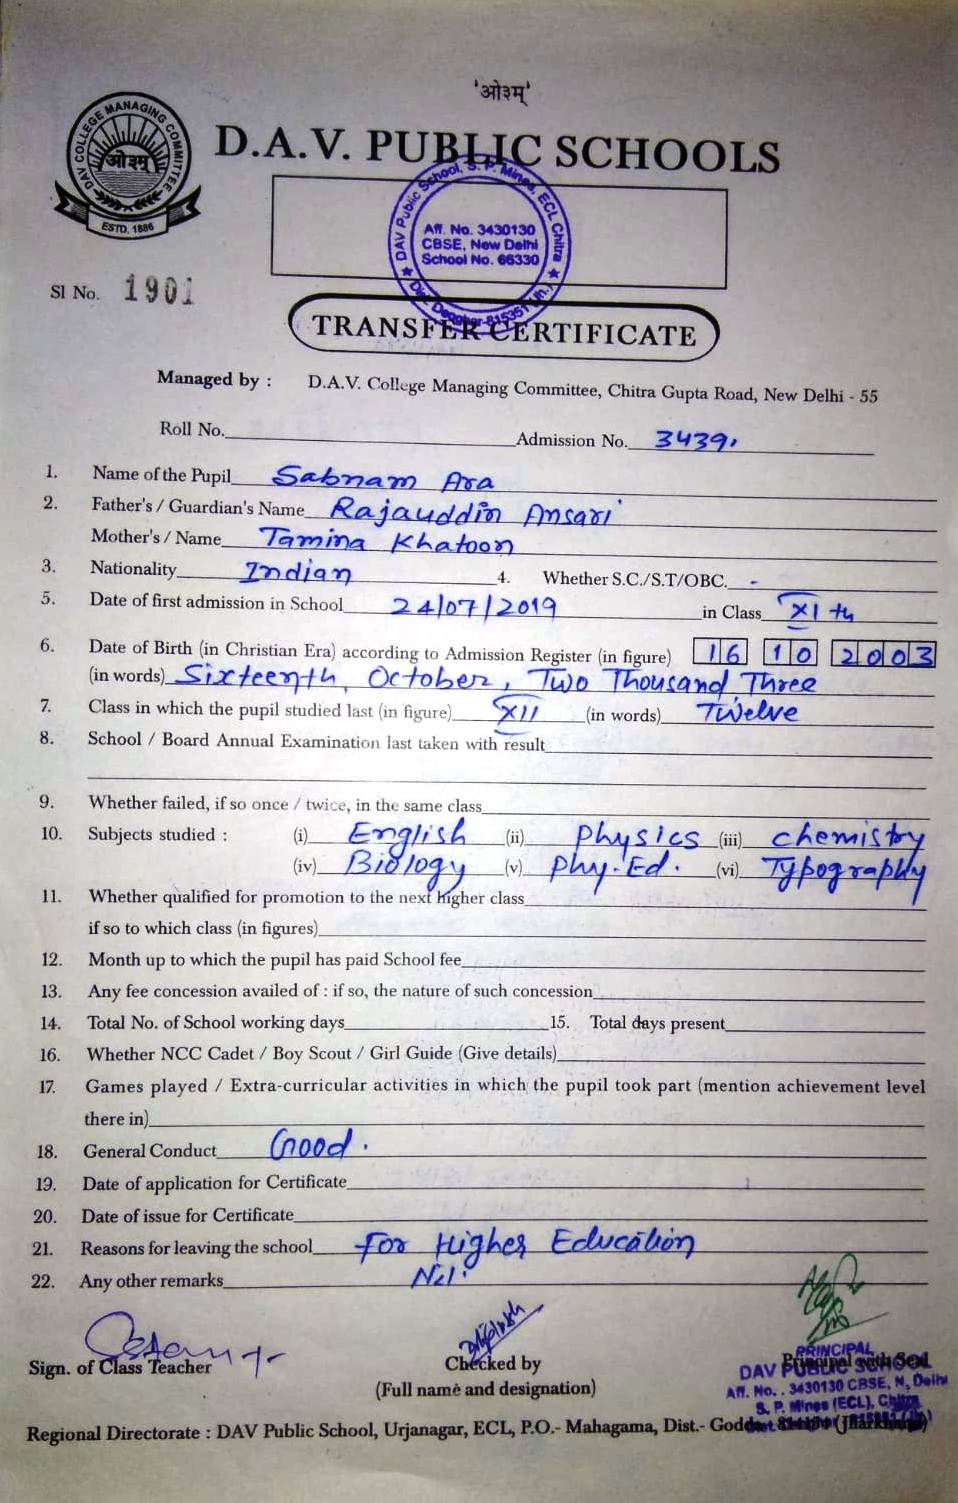 'ओ३म्'
DAV COLLEGE MANAGING COMMITTEE
ओ३म्
ESTD. 1886
D.A.V. PUBLIC SCHOOLS
DAV Public School, S. P. Mines, ECL Chitra
Aff. No. 3430130
CBSE, New Delhi
School No. 66330
Dist. Deoghar-815351 (Jh.)
Sl No. 1901
TRANSFER CERTIFICATE
Managed by : D.A.V. College Managing Committee, Chitra Gupta Road, New Delhi - 55
Roll No. Admission No. 3439
1. Name of the Pupil Sabnam Ara
2. Father's / Guardian's Name Rajauddin Ansari
Mother's / Name Tamina Khatoon
3. Nationality Indian 4. Whether S.C./S.T/OBC. -
5. Date of first admission in School 24/07/2019 in Class XI th
6. Date of Birth (in Christian Era) according to Admission Register (in figure) 16 10 2003
(in words) Sixteenth, October, Two Thousand Three
7. Class in which the pupil studied last (in figure) XII (in words) Twelve
8. School / Board Annual Examination last taken with result
9. Whether failed, if so once / twice, in the same class
10. Subjects studied : (i) English (ii) Physics (iii) chemistry
(iv) Biology (v) Phy. Ed. (vi) Typography
11. Whether qualified for promotion to the next higher class
if so to which class (in figures)
12. Month up to which the pupil has paid School fee
13. Any fee concession availed of : if so, the nature of such concession
14. Total No. of School working days 15. Total days present
16. Whether NCC Cadet / Boy Scout / Girl Guide (Give details)
17. Games played / Extra-curricular activities in which the pupil took part (mention achievement level
there in)
18. General Conduct Good.
19. Date of application for Certificate
20. Date of issue for Certificate
21. Reasons for leaving the school For Higher Education
22. Any other remarks Nil.
Sign. of Class Teacher Checked by Principal with Seal
(Full name and designation)
PRINCIPAL
DAV PUBLIC SCHOOL
Aff. No. . 3430130 CBSE, N, Delhi
S. P. Mines (ECL), Chitra
Regional Directorate : DAV Public School, Urjanagar, ECL, P.O.- Mahagama, Dist.- Godda (Jharkhand)